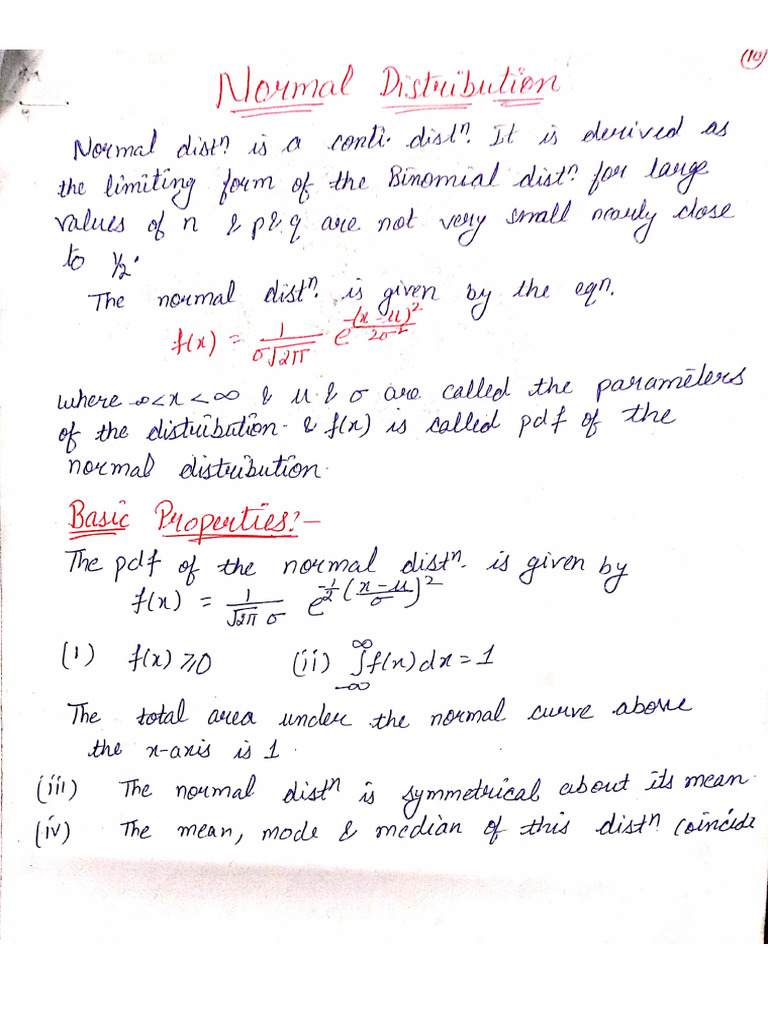 (10)
Normal Distribution
Normal distⁿ. is a conti. distⁿ. It is derived as
the limiting form of the Binomial distⁿ. for large
values of n & p & q are not very small nearly close
to 1/2.
The normal distⁿ. is given by the eqn.
f(x) = 1/(σ√2π) e^(-(x-μ)²/2σ²)
where -∞<x<∞ & μ & σ are called the parameters
of the distribution. & f(x) is called pdf of the
normal distribution.
Basic Properties:-
The pdf of the normal distⁿ. is given by
f(x) = 1/(√2π σ) e^(-1/2 ((x-μ)/σ)²)
(i) f(x) ≥ 0 (ii) ∫_{-∞}^{∞} f(x) dx = 1
The total area under the normal curve above
the x-axis is 1.
(iii) The normal distⁿ is symmetrical about its mean.
(iv) The mean, mode & median of this distⁿ coincide